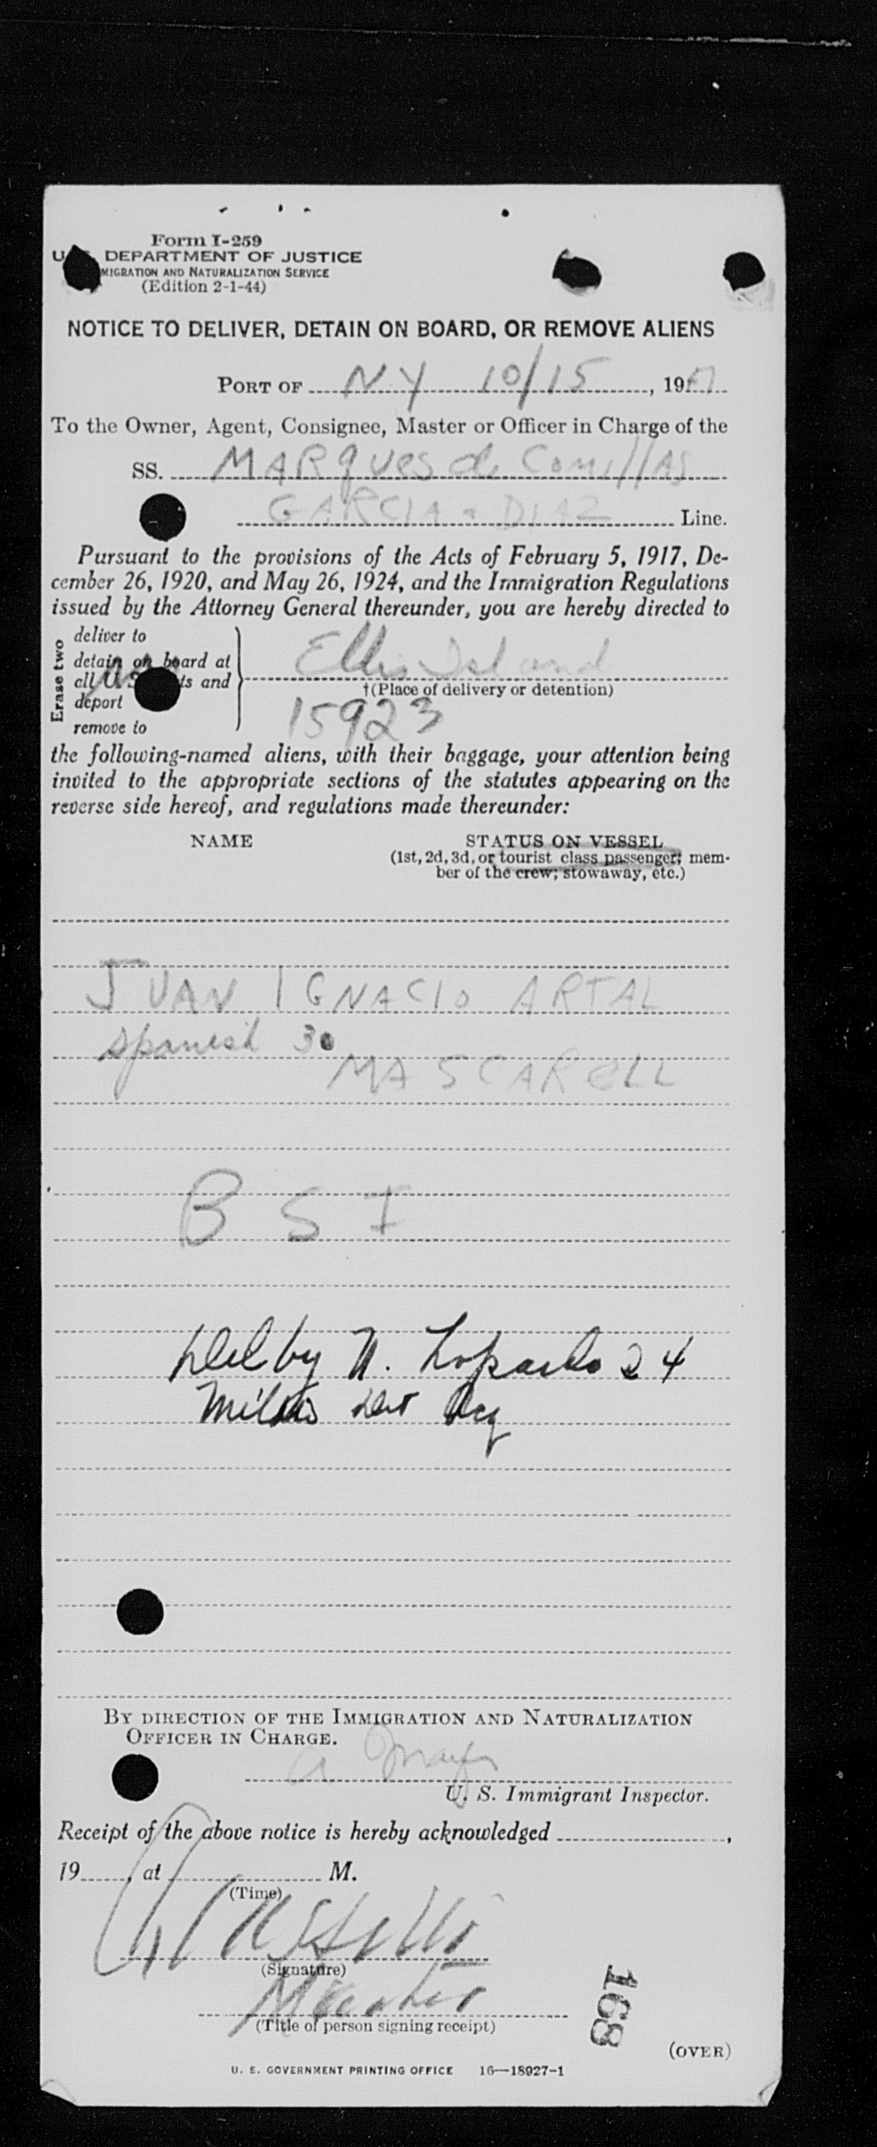 Form I-259
U. S. DEPARTMENT OF JUSTICE
IMMIGRATION AND NATURALIZATION SERVICE
(Edition 2-1-44)
NOTICE TO DELIVER, DETAIN ON BOARD, OR REMOVE ALIENS
PORT OF N.Y 10/15, 19
To the Owner, Agent, Consignee, Master or Officer in Charge of the
SS. MARques de Comillas
GARCIA & DIAZ Line.
Pursuant to the provisions of the Acts of February 5, 1917, De-
cember 26, 1920, and May 26, 1924, and the Immigration Regulations
issued by the Attorney General thereunder, you are hereby directed to
Erase two
deliver to
detain on board at
all U. S. ports and
deport
remove to
Ellis Island
†(Place of delivery or detention)
15923
the following-named aliens, with their baggage, your attention being
invited to the appropriate sections of the statutes appearing on the
reverse side hereof, and regulations made thereunder:
NAME STATUS ON VESSEL
(1st, 2d, 3d, or tourist class passenger; mem-
ber of the crew; stowaway, etc.)
JUAN IGNACIO ARTAL
Spanish 30
MASCARELL
B S I
Del by N. 24
BY DIRECTION OF THE IMMIGRATION AND NATURALIZATION
OFFICER IN CHARGE.
U. S. Immigrant Inspector.
Receipt of the above notice is hereby acknowledged ,
19 , at M.
(Time)
(Signature)
(Title of person signing receipt)
168
(OVER)
U. S. GOVERNMENT PRINTING OFFICE 16—18927-1